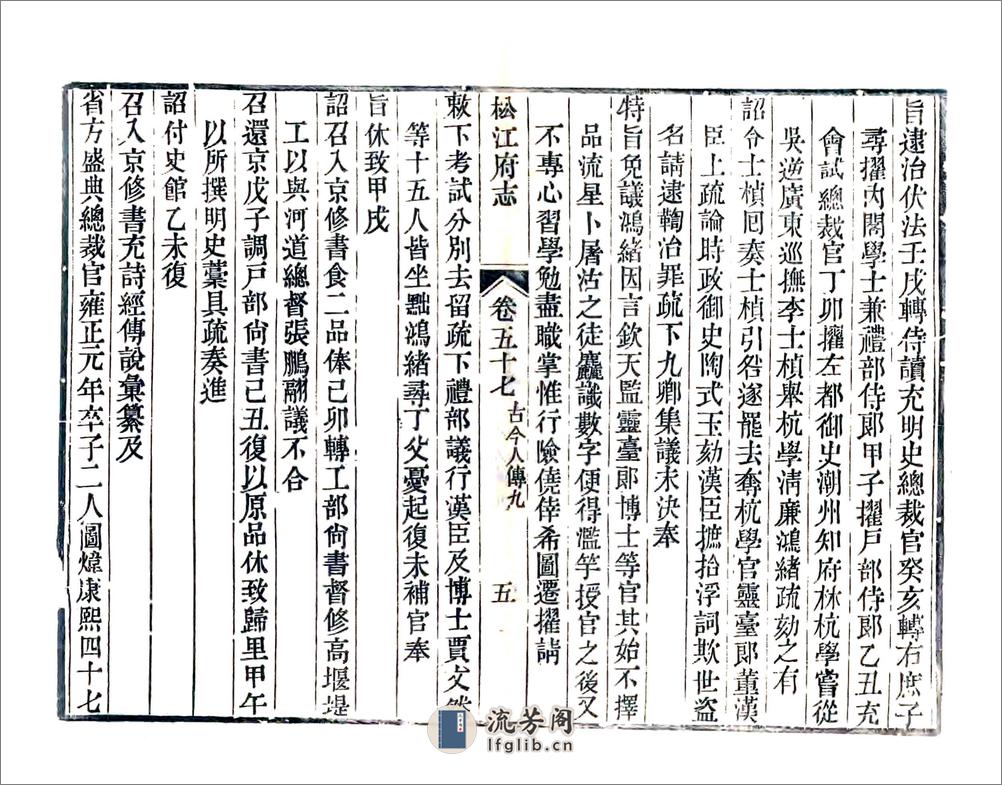 旨逮治伏法壬戌轉侍讀充明史總裁官癸亥轉右庶子
尋擢內閣學士兼禮部侍郎甲子擢戶部侍郎乙丑充
會試總裁官丁卯擢左都御史潮州知府林杭學嘗從
吳逆廣東巡撫李士楨舉杭學清廉鴻緒疏劾之有
詔令士楨囘奏士楨引咎遂罷去奪杭學官靈臺郎董漢
臣上疏論時政御史陶式玉劾漢臣摭拾浮詞欺世盜
名請逮鞫治罪疏下九卿集議未決奉
特旨免議鴻緒因言欽天監靈臺郎博士等官其始不擇
品流星卜屠沽之徒麤識數字便得濫竽授官之後又
不專心習學勉盡職掌惟行險僥倖希圖遷擢請
松江府志
卷五十七
古今人傳九
五
敕下考試分別去留疏下禮部議行漢臣及博士賈文然
等十五人皆坐黜鴻緒尋丁父憂起復未補官奉
旨休致甲戌
詔召入京修書食二品俸己卯轉工部尚書督修高堰堤
工以與河道總督張鵬翮議不合
召還京戊子調戶部尚書己丑復以原品休致歸里甲午
以所撰明史藁具疏奏進
詔付史館乙未復
召入京修書充詩經傳說彙纂及
省方盛典總裁官雍正元年卒子二人圖煒康熙四十七
流芳阁
lfglib.cn